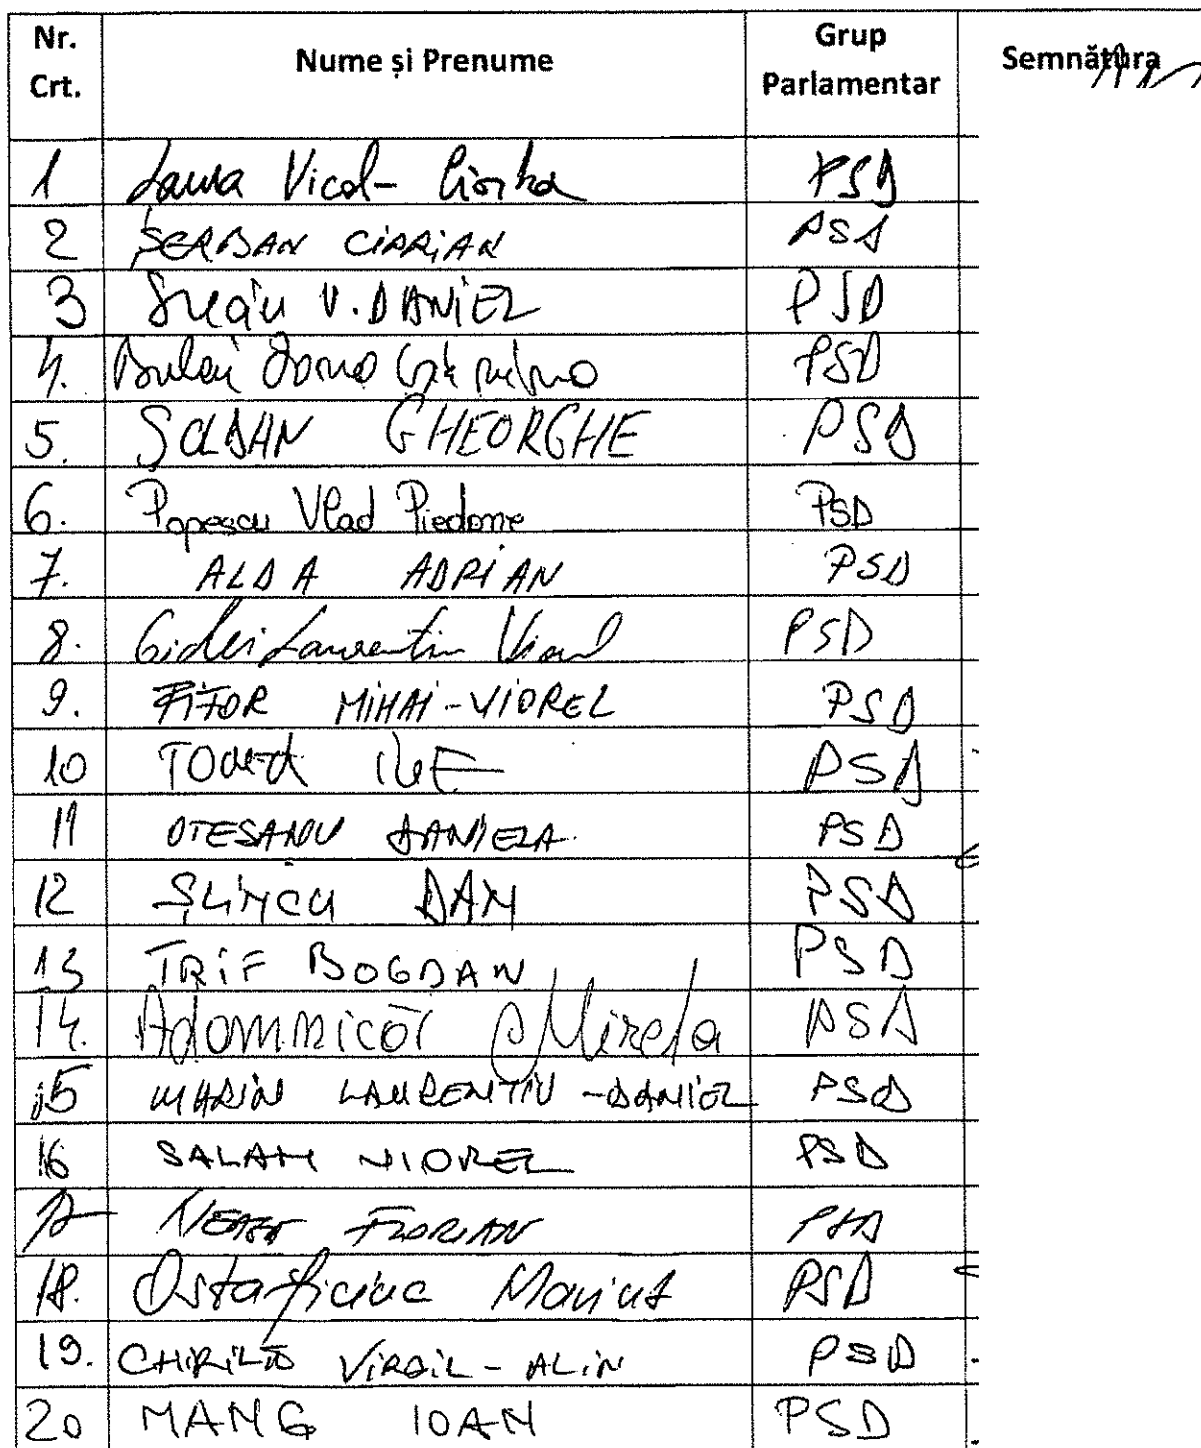 Nr. Crt. Nume și Prenume Grup Parlamentar Semnătura
1 Laura Vicol- Ciorbă PSD
2 ȘERBAN CIPRIAN PSD
3 Suciu V. DANIEL PSD
4. PSD
5. ȘOLDAN GHEORGHE PSD
6. Popescu Vlad Piedone PSD
7. ALDA ADRIAN PSD
8. Gidei Laurentiu Viorel PSD
9. FIFOR MIHAI-VIOREL PSD
10 TOADER ILIE PSD
11 OTESANU DANIELA PSD
12 ȘLINCU DAN PSD
13 TRIF BOGDAN PSD
14. Adomnicăi Mirela PSD
15 MARIN LAURENTIU-DANIEL PSD
16 SALAN VIOREL PSD
17 NEAȚU FLORIAN PSD
18. Ostaficiuc Marius PSD
19. CHIRILĂ VIRGIL-ALIN PSD
20 MANG IOAN PSD